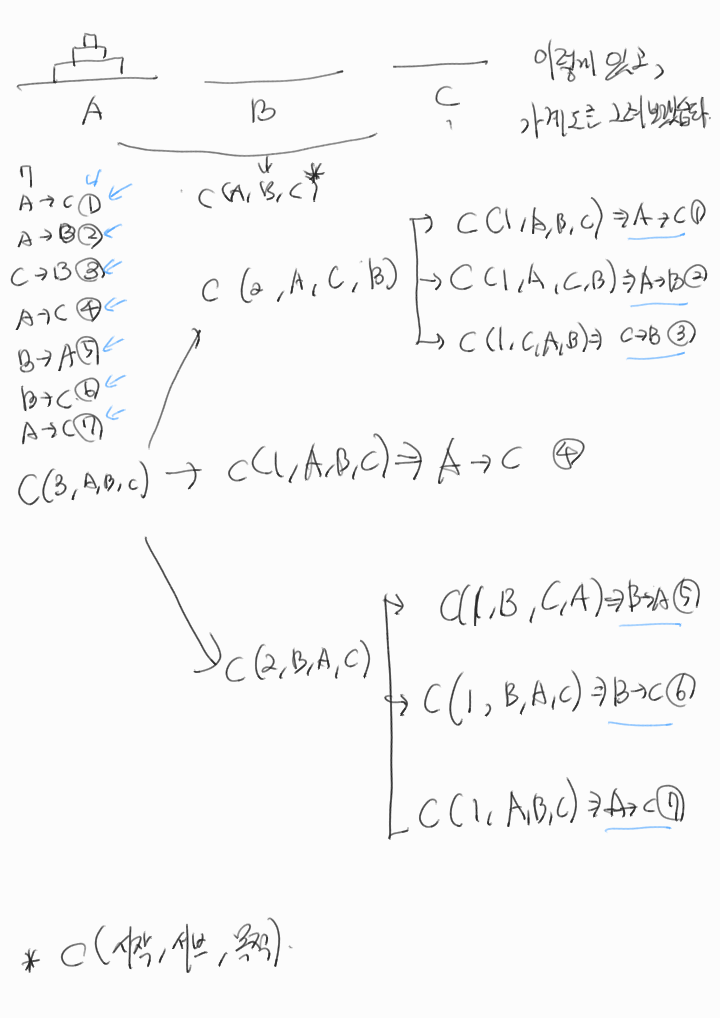 이렇게 있고,
A B C
가계도를 그려보겠습니다.
C(A, B, C)*
7 4
A→C ①
A→B ②
C→B ③
A→C ④
B→A ⑤
B→C ⑥
A→C ⑦
C(3, A, B, C)
C(2, A, C, B)
C(1, A, B, C)⇒A→C ①
C(1, A, C, B)⇒A→B ②
C(1, C, A, B)⇒C→B ③
→ C(1, A, B, C)⇒A→C ④
C(2, B, A, C)
C(1, B, C, A)⇒B→A ⑤
C(1, B, A, C)⇒B→C ⑥
C(1, A, B, C)⇒A→C ⑦
* C(시작, 서브, 목적).